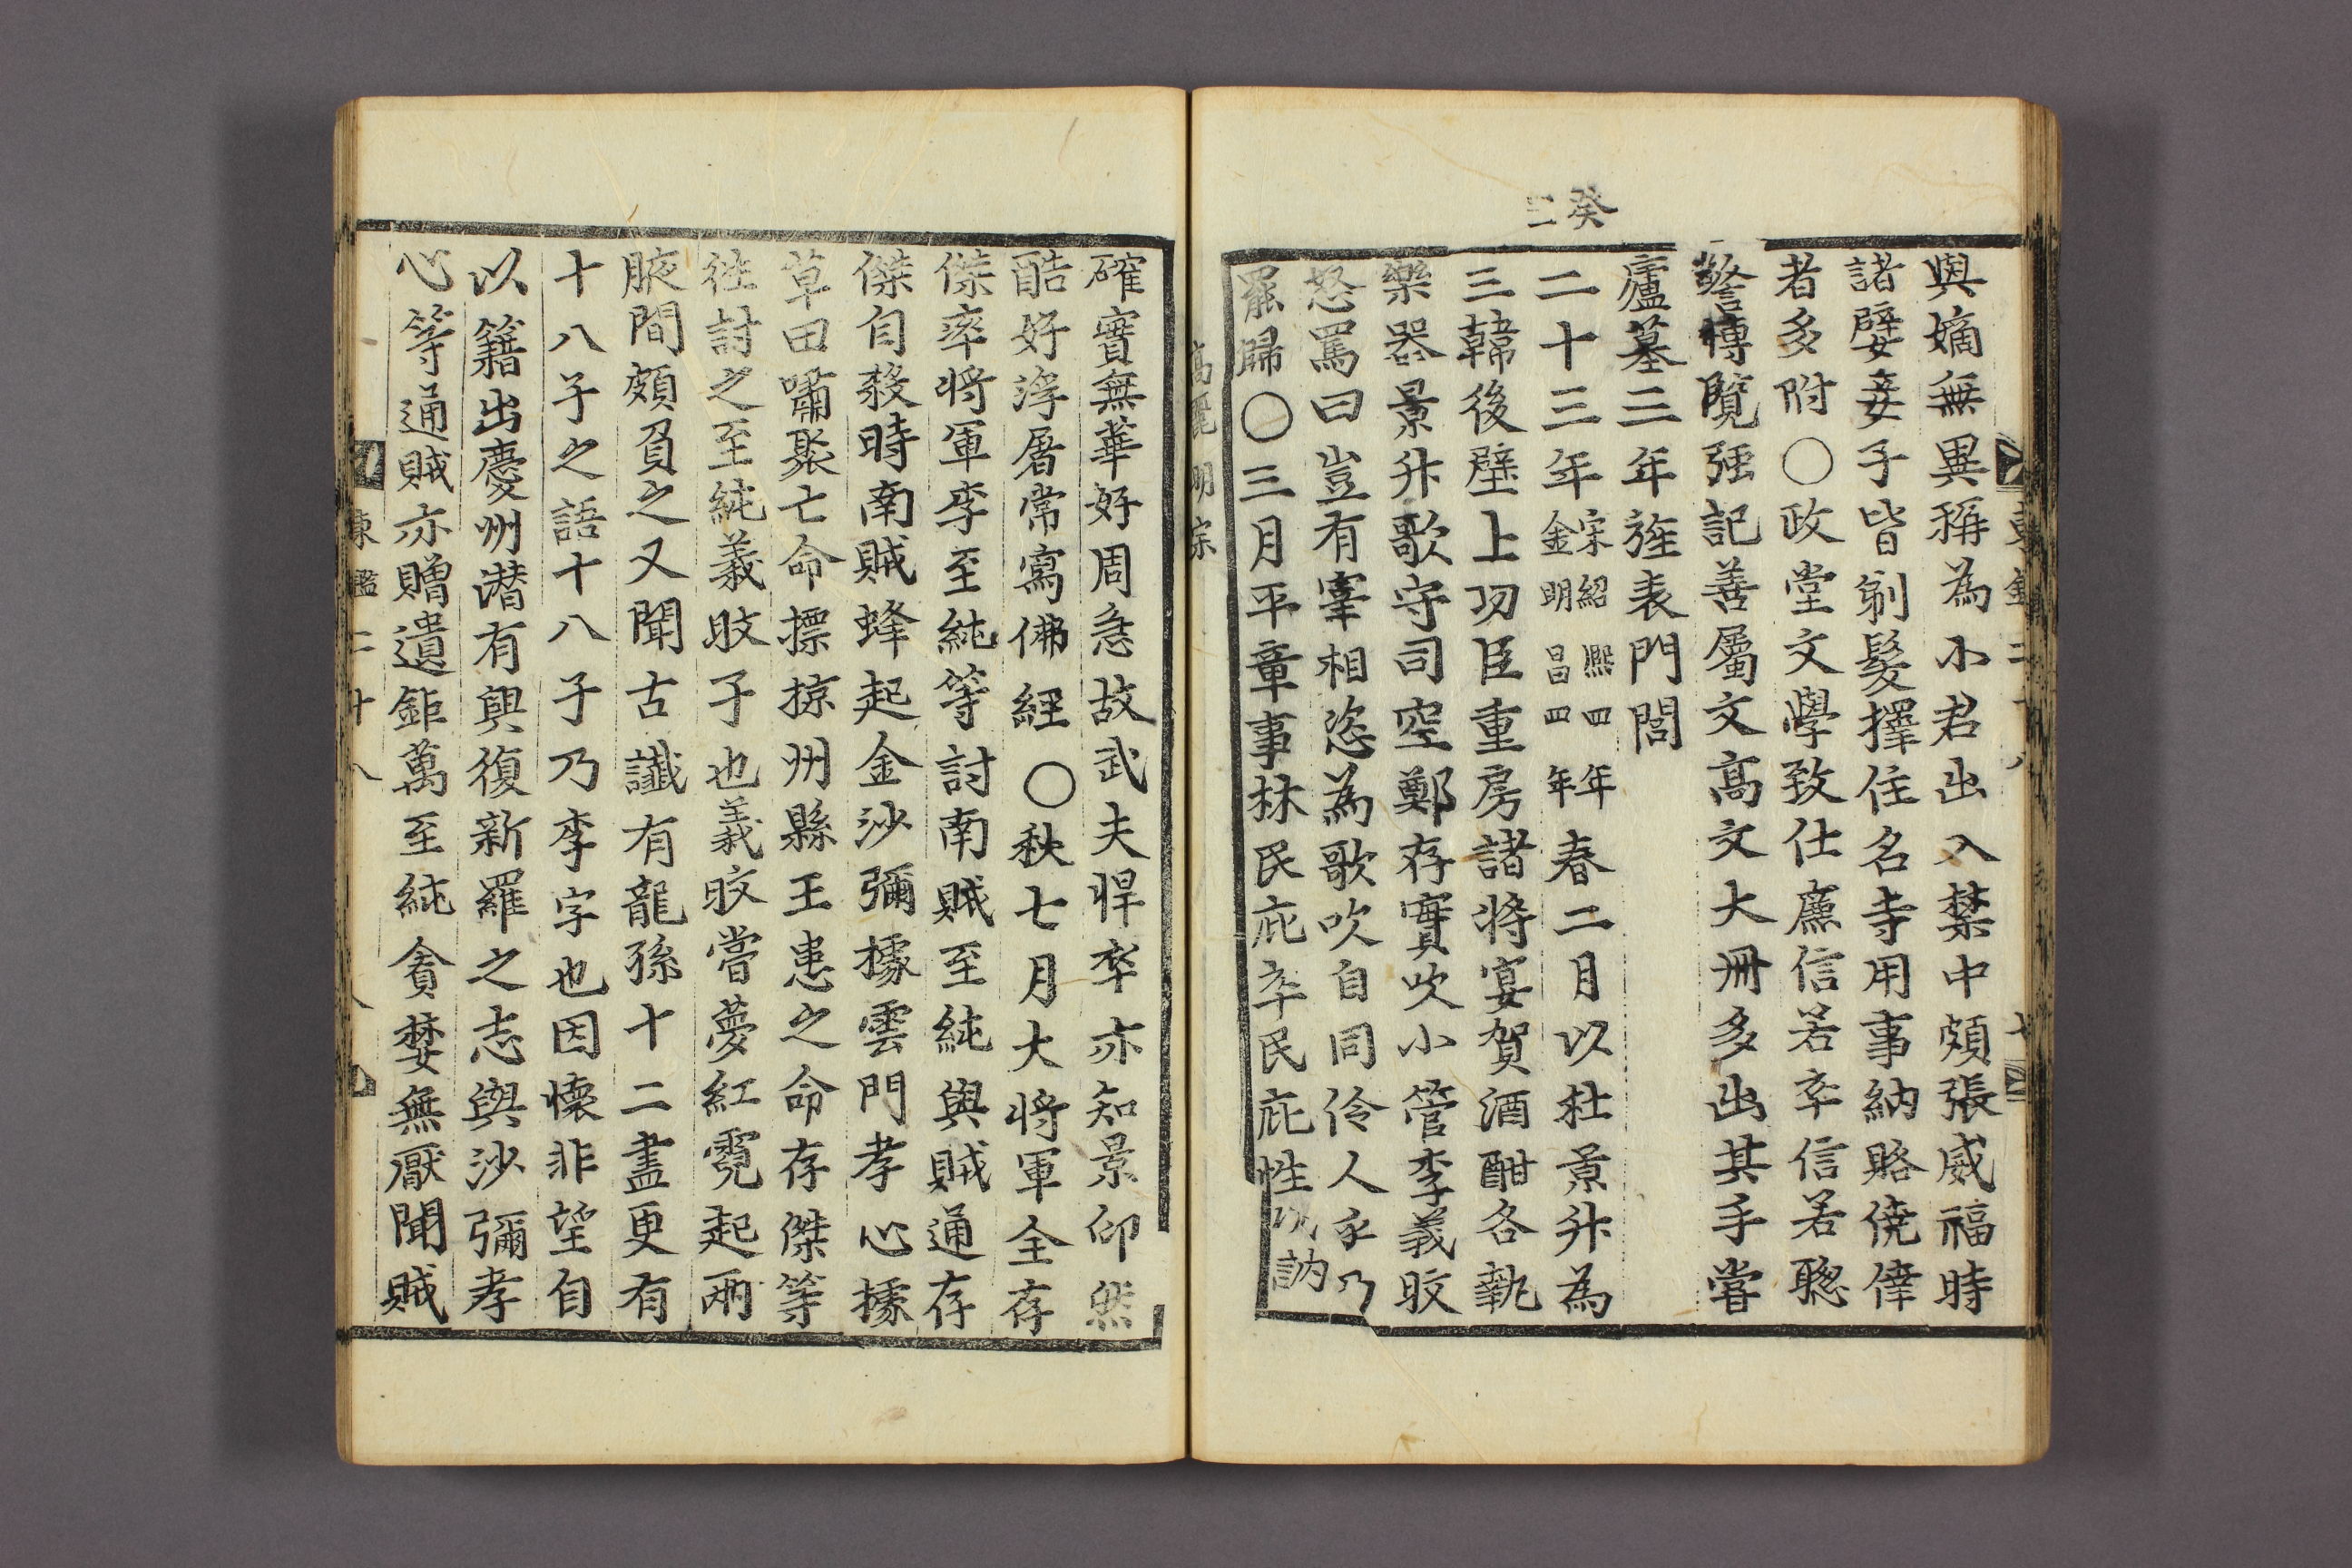 癸
與嫡無異稱為小君出入禁中頗張威福時
諸嬖妾子皆剃髮擇住名寺用事納賂僥倖
者多附○政堂文學致仕廉信若卒信若聰
警博覽强記善屬文高文大冊多出其手嘗
廬墓三年旌表門閭
二十三年宋紹熙四年金明昌四年春二月以杜景升為
三韓後壁上功臣重房諸將宴賀酒酣各執
樂器景升歌守司空鄭存實吹小管李義旼
怒罵曰豈有宰相恣為歌吹自同伶人乎乃
罷歸○三月平章事林民庇卒民庇性以訥
高麗 明宗
確實無華好周急故武夫悍卒亦知景仰然
酷好浮屠常寫佛經○秋七月大將軍全存
傑率將軍李至純等討南賊至純與賊通存
傑自殺時南賊蜂起金沙彌據雲門孝心據
草田嘯聚亡命摽掠州縣王患之命存傑等
往討之至純義旼子也義旼嘗夢紅霓起兩
腋間頗負之又聞古讖有龍孫十二盡更有
十八子之語十八子乃李字也因懷非望自
以籍出慶州潛有興復新羅之志與沙彌孝
心等通賊亦贈遺鉅萬至純貪婪無厭聞賊
東鑑二十八